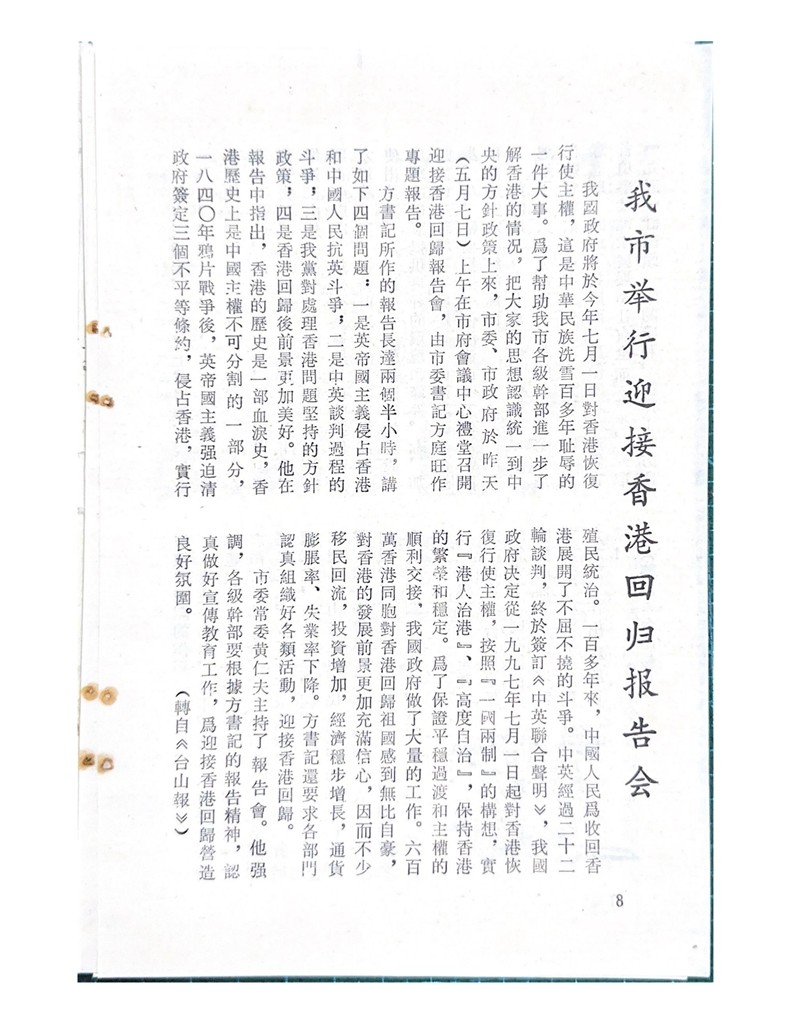 我市举行迎接香港回归报告会
我國政府將於今年七月一日對香港恢復
行使主權，這是中華民族洗雪百多年耻辱的
一件大事。爲了幫助我市各級幹部進一步了
解香港的情况，把大家的思想認識統一到中
央的方針政策上來，市委、市政府於昨天
（五月七日）上午在市府會議中心禮堂召開
迎接香港回歸報告會，由市委書記方庭旺作
專題報告。
方書記所作的報告長達兩個半小時，講
了如下四個問題；一是英帝國主義侵占香港
和中國人民抗英斗爭，二是中英談判過程的
斗爭，三是我黨對處理香港問題堅持的方針
政策，四是香港回歸後前景更加美好。他在
報告中指出，香港的歷史是一部血淚史，香
港歷史上是中國主權不可分割的一部分，
一八四〇年鴉片戰爭後，英帝國主義强迫清
政府簽定三個不平等條約，侵占香港，實行
殖民統治。一百多年來，中國人民爲收回香
港展開了不屈不撓的斗爭。中英經過二十二
輪談判，終於簽訂《中英聯合聲明》，我國
政府决定從一九九七年七月一日起對香港恢
復行使主權，按照『一國兩制』的構想，實
行『港人治港』、『高度自治』，保持香港
的繁榮和穩定。爲了保證平穩過渡和主權的
順利交接，我國政府做了大量的工作。六百
萬香港同胞對香港回歸祖國感到無比自豪，
對香港的發展前景更加充滿信心，因而不少
移民回流，投資增加，經濟穩步增長，通貨
膨脹率、失業率下降。方書記還要求各部門
認真組織好各類活動，迎接香港回歸。
市委常委黄仁夫主持了報告會。他强
調，各級幹部要根據方書記的報告精神，認
真做好宣傳教育工作，爲迎接香港回歸營造
良好氛圍。
（轉自《台山報》）
8